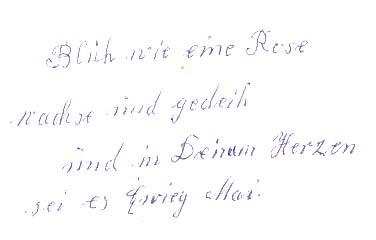 Blüh wie eine Rose
wachse und gedeih
und in Deinem Herzen
sei es Ewieg Mai.